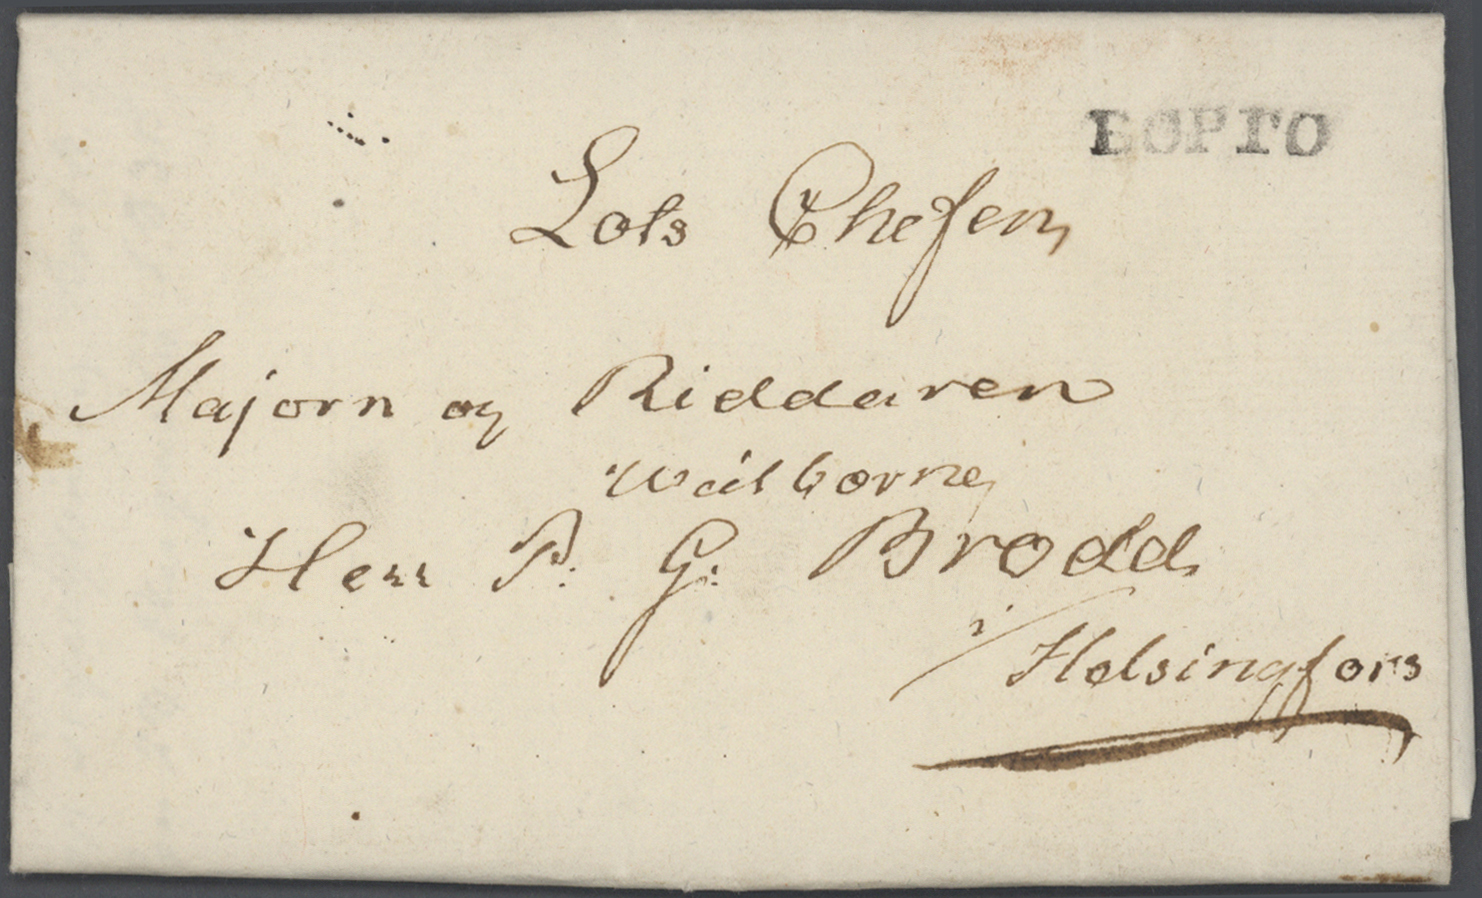 БОРГО
Lots Chefen
Majorn og Riddaren
Wälborne
Herr P. G. Brodd
i/ Helsingfors